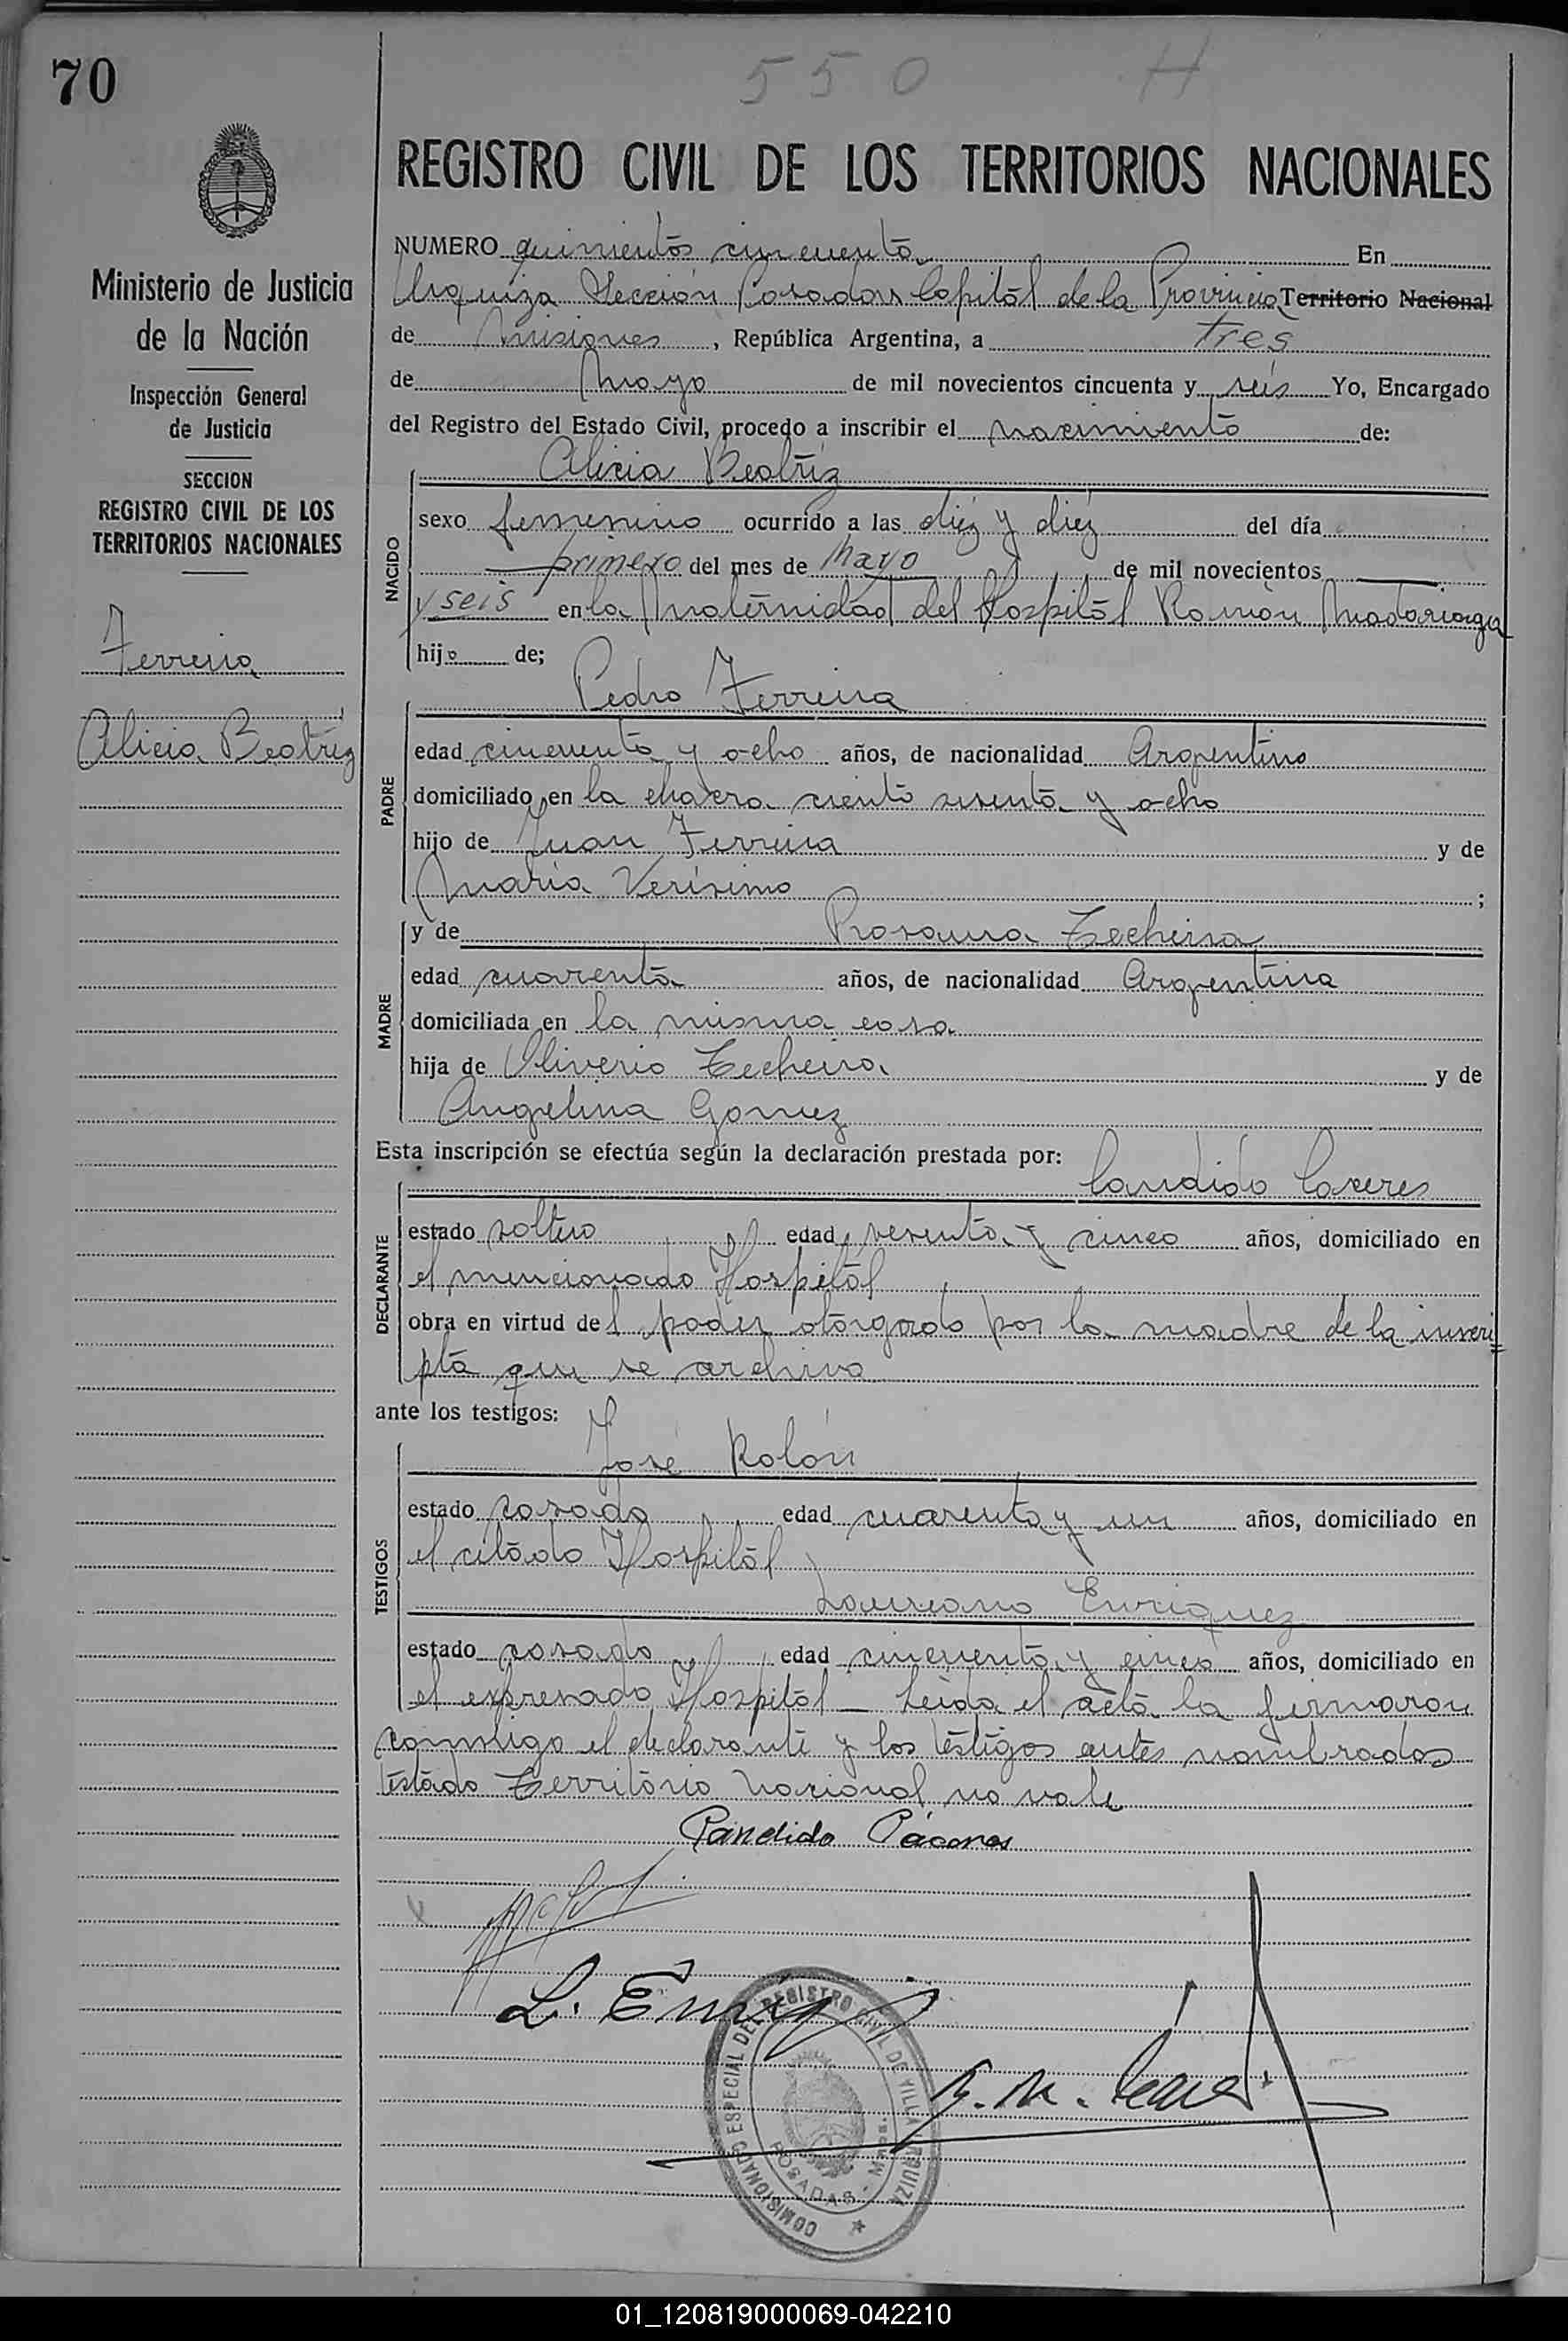 70
550 H
REGISTRO CIVIL DE LOS TERRITORIOS NACIONALES
Ministerio de Justicia
de la Nación
Inspección General
de Justicia
SECCION
REGISTRO CIVIL DE LOS
TERRITORIOS NACIONALES
Ferreira
Alicia Beatriz
NUMERO quinientos cincuenta En
Urquiza Sección Posadas Capital de la Provincia Territorio Nacional
de Misiones, República Argentina, a tres
de Mayo de mil novecientos cincuenta y seis Yo, Encargado
del Registro del Estado Civil, procedo a inscribir el nacimiento de:
NACIDO
Alicia Beatriz
sexo femenino ocurrido a las diez y diez del día
primero del mes de Mayo de mil novecientos
y seis en la Maternidad del Hospital Ramón Madariaga
hija de;
PADRE
Pedro Ferreira
edad cincuenta y ocho años, de nacionalidad Argentino
domiciliado en la chacra ciento sesenta y ocho
hijo de Juan Ferreira y de
María Verísimo ;
MADRE
y de Rosaura Techeira
edad cuarenta años, de nacionalidad Argentina
domiciliada en la misma casa
hija de Oliverio Techeira y de
Angelina Gomez
Esta inscripción se efectúa según la declaración prestada por:
DECLARANTE
Candido Caceres
estado soltero edad sesenta y cinco años, domiciliado en
el mencionado Hospital
obra en virtud del poder otorgado por la madre de la inscri
pta que se archiva
ante los testigos:
TESTIGOS
José Rolón
estado casado edad cuarenta y un años, domiciliado en
el citado Hospital
Laureano Enriquez
estado casado edad cincuenta y cinco años, domiciliado en
el expresado Hospital — Leida el acta la firmaron
conmigo el declarante y los testigos antes nombrados
testado Territorio Nacional no vale
Candido Cáceres
L. Enriq
COMISIONADO ESPECIAL DEL REGISTRO CIVIL DE VILLA URQUIZA
POSADAS - Mnes.
01_120819000069-042210